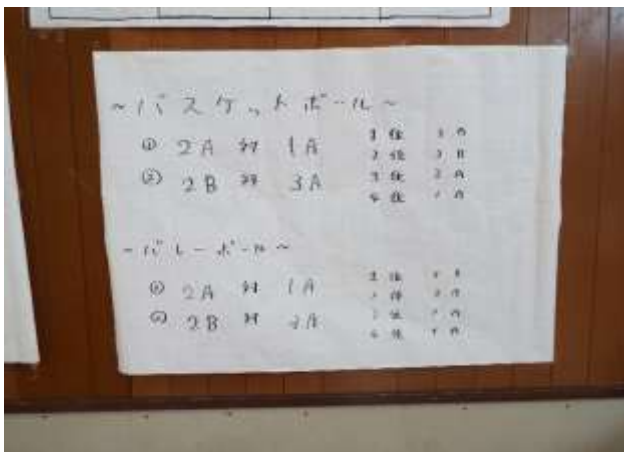 ~バスケットボール~
① 2A 対 1A
② 2B 対 3A
1位 3A
2位 2B
3位 2A
4位 1A
~バレーボール~
① 2A 対 1A
② 2B 対 3A
1位
2位
3位
4位